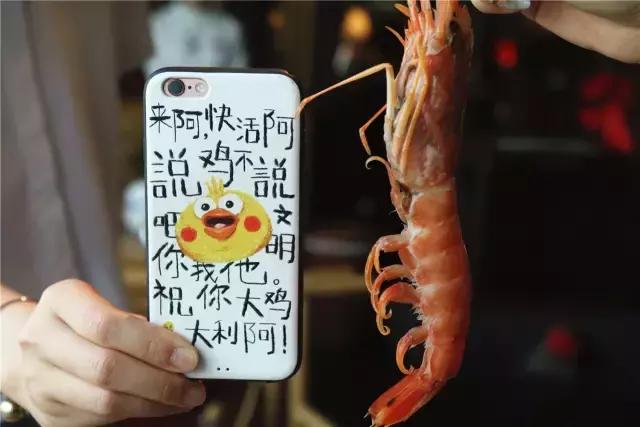 来阿,快活阿
説鸡不説
吧文
你我他。明
祝你大鸡
大利阿!